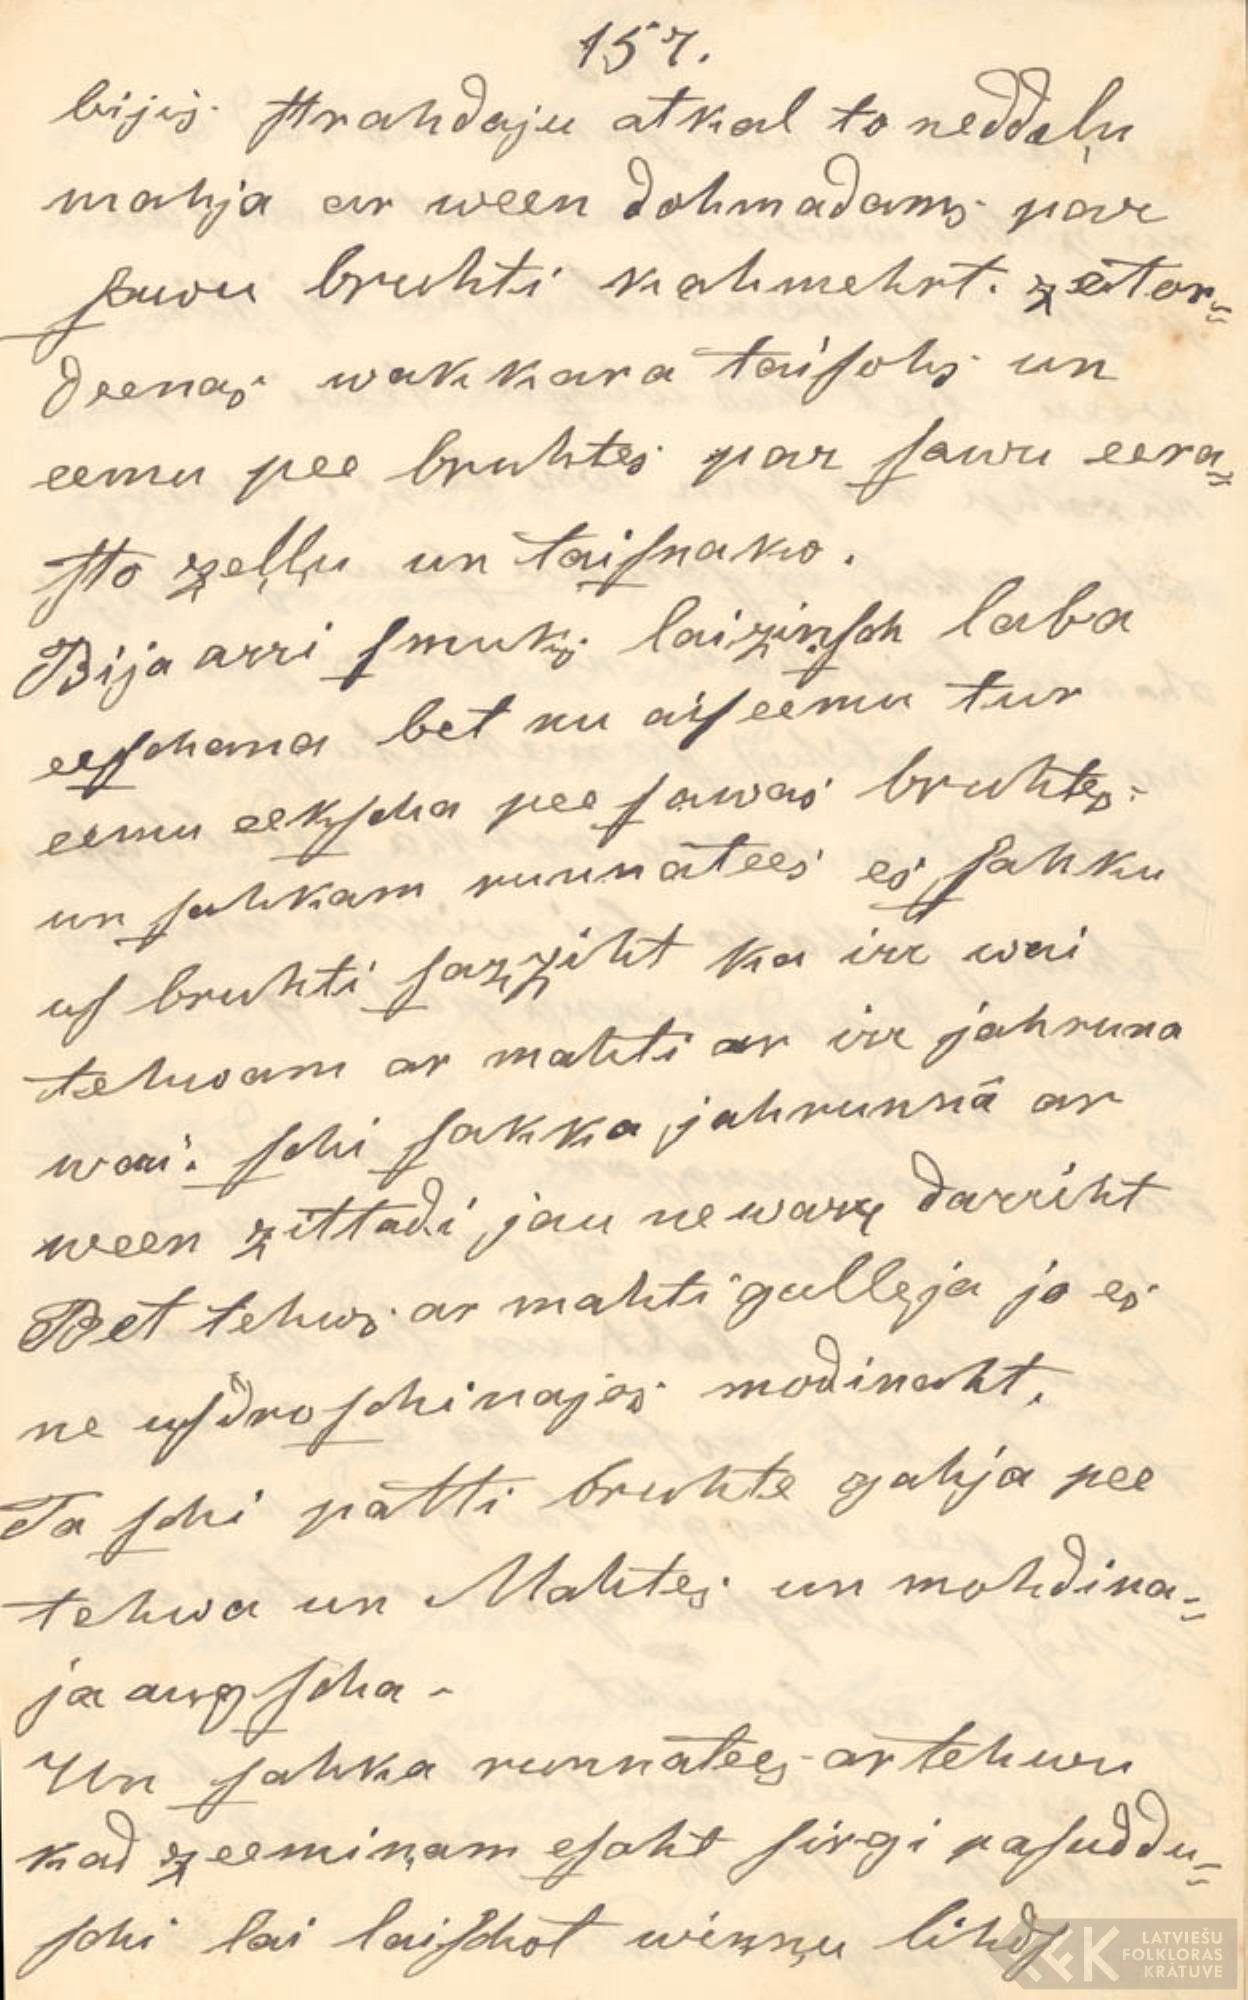 157.
bijis. strahdaju atkal to neddeļu
mahja ar ween dohmadams par
sawu bruhti kahmehrt. zetor=
deenas wakkara taisohs un
eemu pee bruhtes par sawu eera=
sto zeļļu un taisnako.
Bija arri smuks laiziņsch laba
eeschana bet nu aiseemu tur
eemu eekscha pee sawas bruhtes.
un sahkam runnatees es sahku
us bruhti sazziht ka irr wai
tehwam ar mahti ar irr jahruna
wai. schi sakka jahrunna ar
ween zittadi jau ne warr darriht
Bet tehws ar mahti gulleja jo es
ne usdroschinajos modinaht.
Ta schi patti bruhte gahja pee
tehwa un Mahtes un mohdina=
ja augscha -
Un sahka runnatees ar tehwu
kad zeemiņam esoht sirgi pasuddu=
schi lai laischot wiņņu lihds
LATVIEŠU
FOLKLORAS
KRĀTUVE